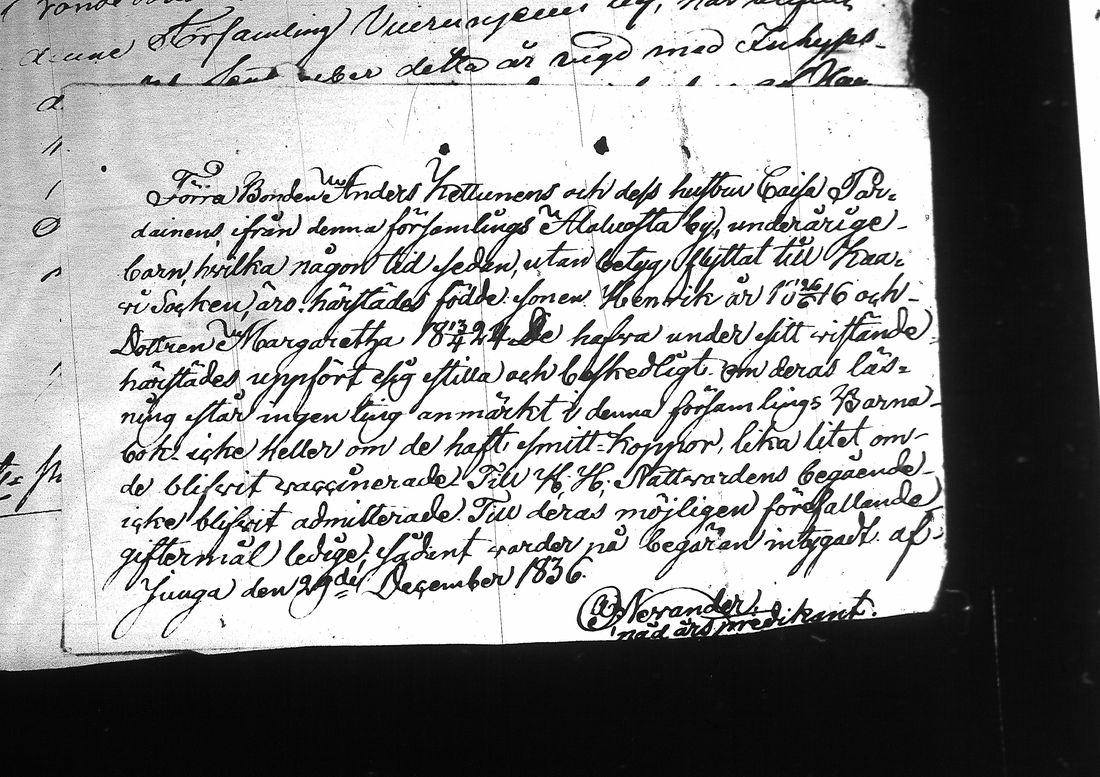 denna Församling
detta är vigd med Inhyses-
Förra Bonden Anders Kettunens och dess hustru Caisa Par-
dainens, ifrån denna församlings Alalvosta by, underårige
barn, hvilka någon tid sedan, utan betyg, flyttat till Kaa-
vi Socken, äro härstädes födde: sonen Henrik år 18 26/6 16 och
Dottren Margaretha 18 13/4 24. De hafva under sitt vistande
härstädes uppfört sig stilla och beskedligt. om deras läs-
ning står ingenting anmärkt i denna församlings Barna-
bok: icke heller om de haft smitt-koppor, lika litet om
de blifvit vaccinerade. Till H. H. Nattvardens begående
icke blifvit admitterade. Till deras möjligen förefallande
giftermål ledige, sådant varder på begäran intygadt af
Juuga den 29de December 1836.
Nerrander.
näd. års predikant.